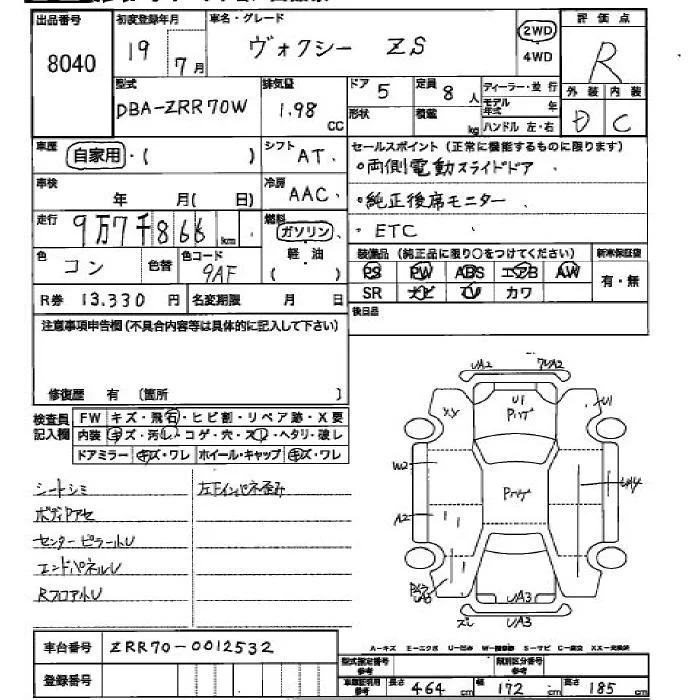 出品番号 初度登録年月 車名・グレード 評価点
8040 19 7月 ヴォクシー ZS 2WD 4WD R
型式 排気量 ドア 5 定員 8人 ディーラー・並行 外装 内装
DBA-ZRR70W 1.98 CC 形状 積載 kg モデル年式 年 D C
ハンドル 左・右
車歴 自家用・( ) シフト AT. セールスポイント(正常に機能するものに限ります)
・両側電動スライドドア
車検 年 月( 日) 冷房 AAC.
・純正後席モニター
走行 9万7千866km 燃料 ガソリン 軽油 ( )
・ETC
色 コン 色替 色コード 9AF
装備品(純正品に限り○をつけてください) 新車保証書
PS PW ABS エアB AW 有・無
R券 13,330 円 名変期限 月 日 SR ナビ TV カワ
注意事項申告欄(不具合内容等は具体的に記入して下さい) 後日品
修復歴 有 (箇所 )
検査員記入欄 FW キズ・飛石・ヒビ割・リペア跡・X要
内装 キズ・汚レ・コゲ・穴・スレ・ヘタリ・破レ
ドアミラー キズ・ワレ ホイール・キャップ キズ・ワレ
UA2
XX U1 U1
Pハゲ
W2
Pハゲ
A2
UA3
UA3
シートシミ 左Fインパネ歪み
ボディPアセ
センターピラーハU
エンドパネルU
RフロアハU
車台番号 ZRR70-0012532
A-キズ E-エクボ U-凹み S-サビ
登録番号 型式指定番号 参考 類別区分番号 参考
車庫証明用 参考 長さ 464 cm 幅 172 cm 高さ 185 cm